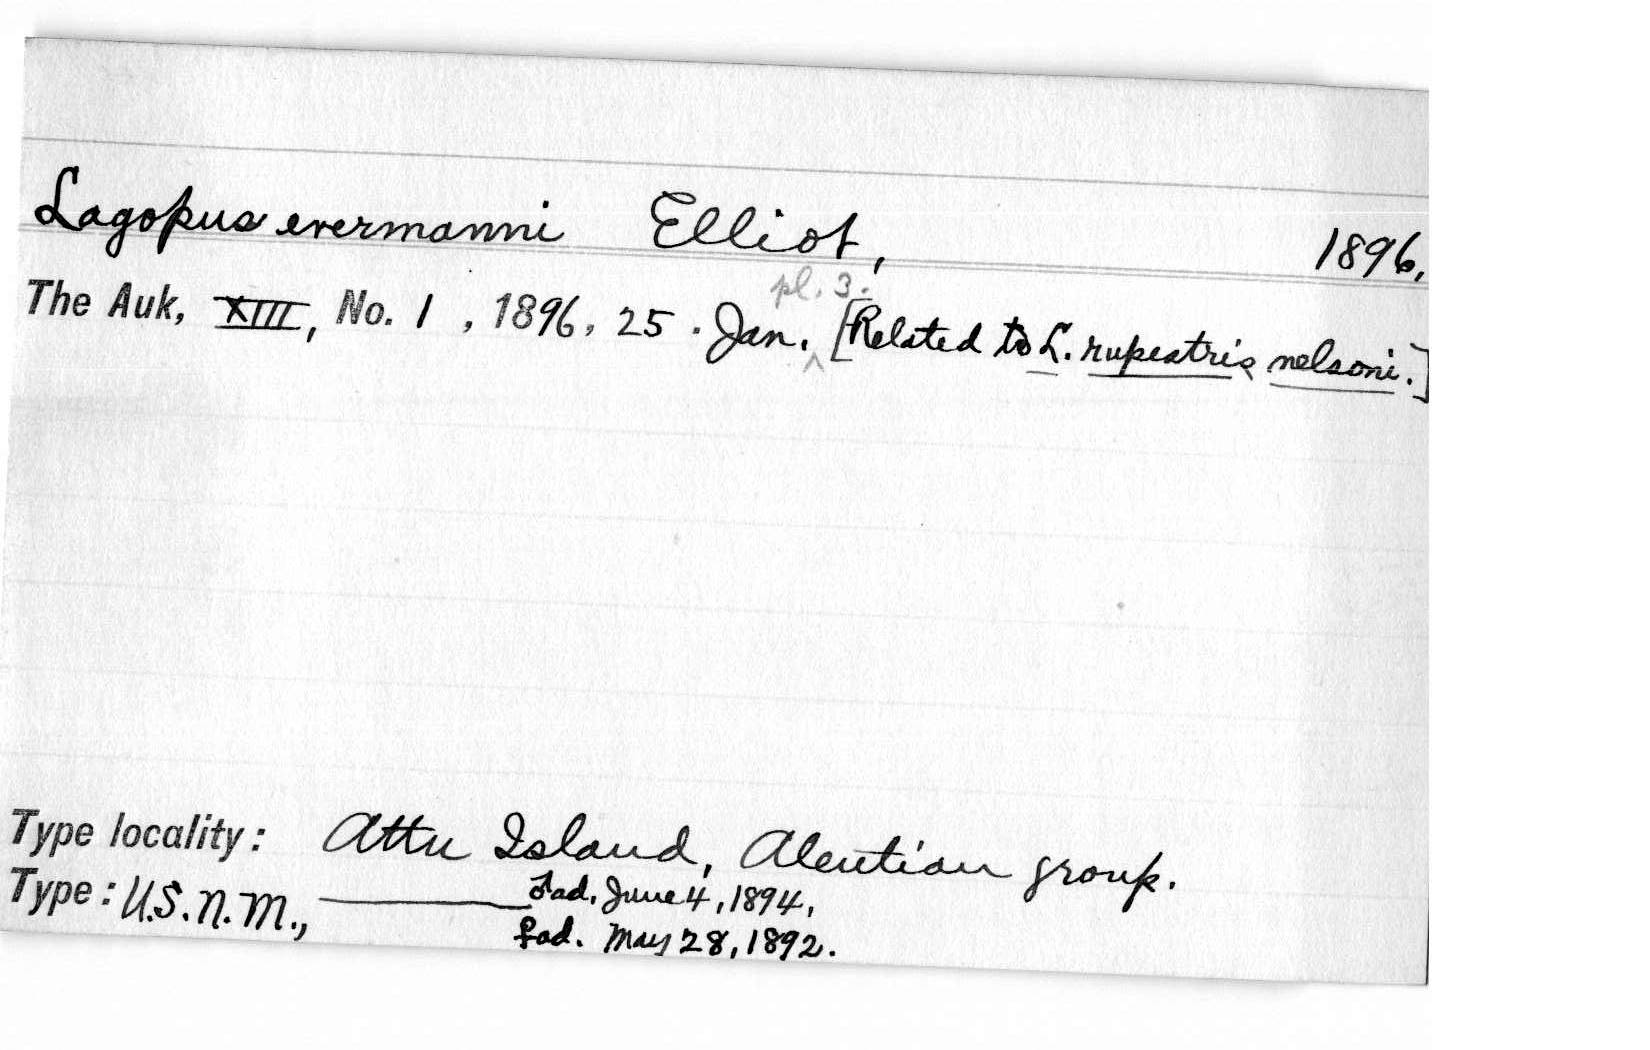 Lagopus evermanni Elliot, 1896,
The Auk, XIII, No. 1, 1896, 25. Jan. pl. 3. [Related to L. rupestris nelsoni.]
Type locality: Attu Island, Aleutian group.
Type: U.S.N.M., ♂ad. June 4, 1894,
♀ad. May 28, 1892.